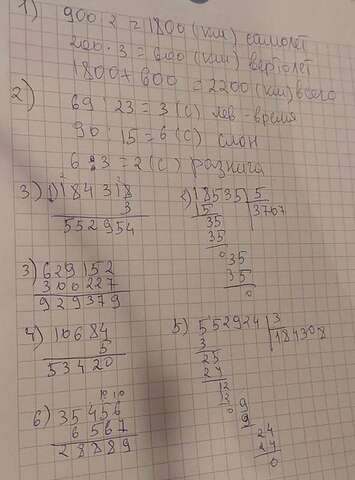 1) 900 · 2 = 1800 (км) самолёт
200 · 3 = 600 (км) вертолёт
1800 + 600 = 2200 (км) всего
2) 69 : 23 = 3 (с) лев - время
90 : 15 = 6 (с) слон
6 : 3 = 2 (с) разница
3) 1) 184318
3
552954
2) 18535 5
5 3707
35
35
035
35
0
3) 629152
300227
929379
4) 10684
5
53420
5) 552924 3
3 184308
25
24
12
12
09
9
24
24
0
10 10
6) 35456
6567
28889